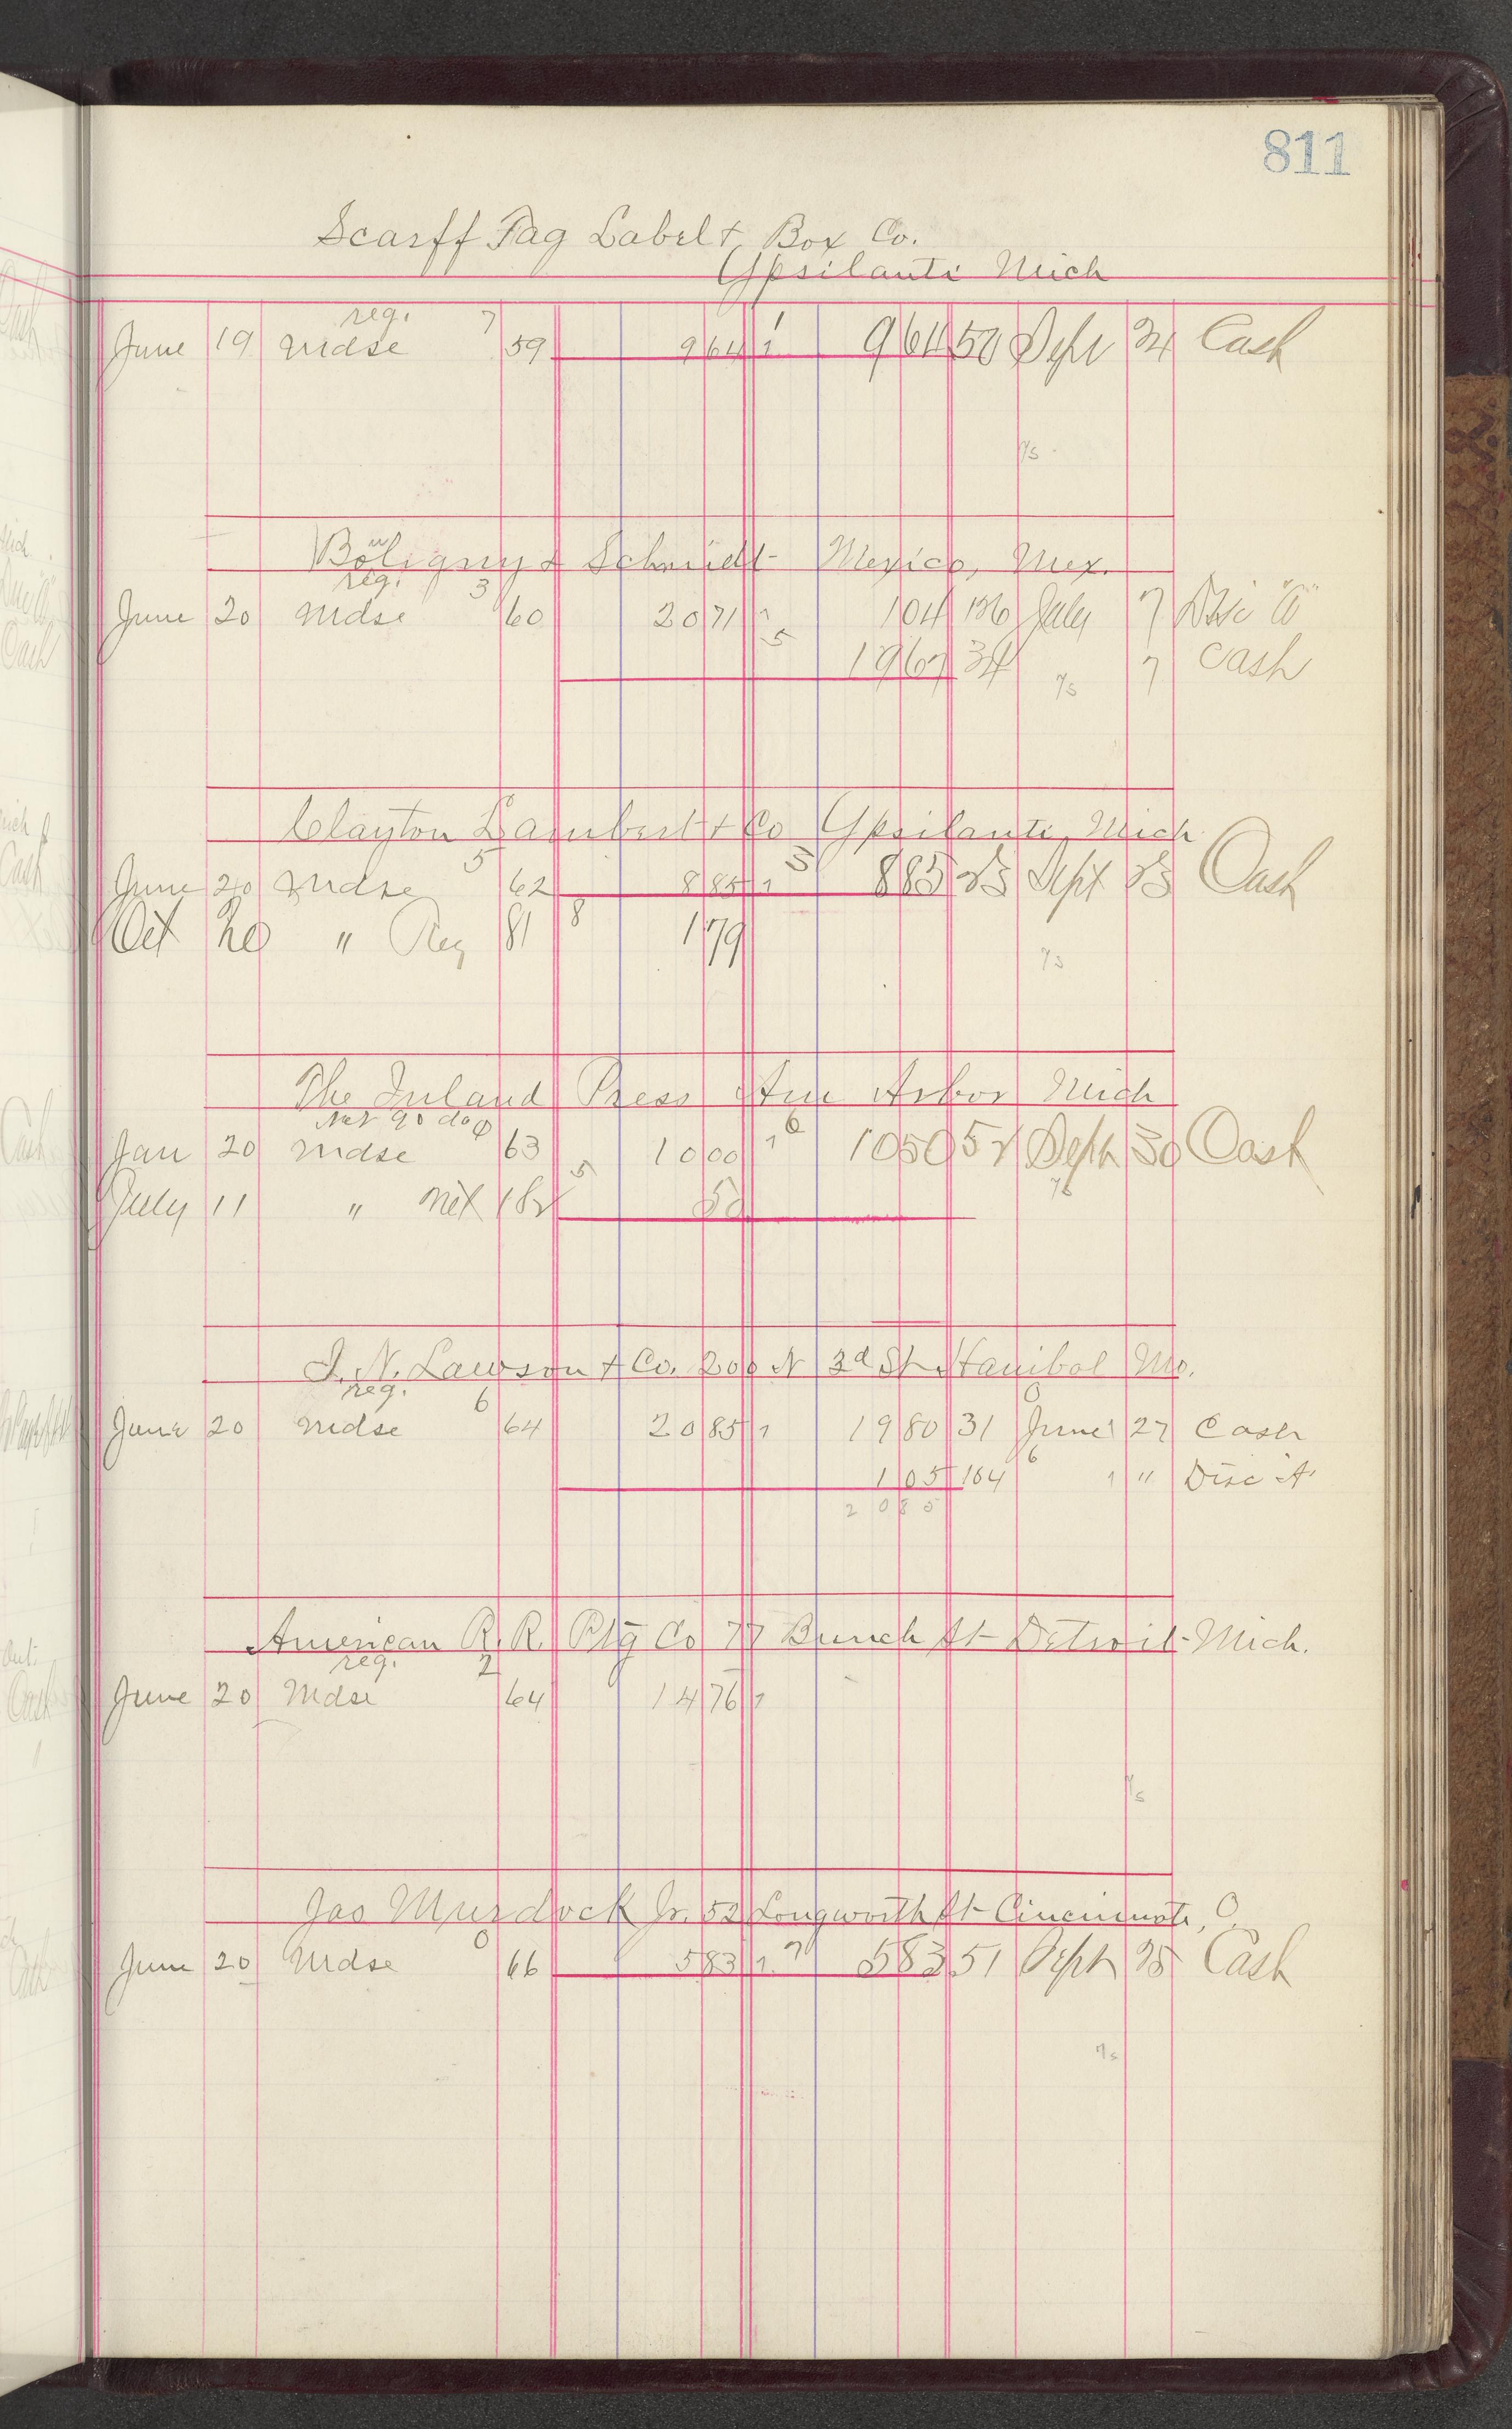 811
Scarff Tag Label & Box Co.
Ypsilanti Mich
reg. 7
June 19 Mdse 59 964 1 1 964 50 Sept 24 Cash
7/3
Boligny & Schmidt Mexico, Mex.
reg. 3
June 20 Mdse 60 2071 1 5 104 136 July 7 Disc "A"
1967 34 7 Cash
7/3
Clayton Lambert & Co Ypsilanti, Mich
June 20 Mdse 5 62 885 1 3 885 23 Sept 23 Cash
Oct 20 " Reg 81 8 179
7/3
The Inland Press Ann Arbor Mich
Net 90 do
Jan 20 Mdse 63 1000 1 6 1050 52 Sept 30 Cash
July 11 " net 182 5 50
J. N. Lawson & Co. 200 N 3d St. Hanibal Mo.
reg. 6
June 20 Mdse 64 2085 1 1980 31 June 27 Cash
105 164 6 " Disc "A"
2085
American R. R. Ptg Co 77 Bunch St Detroit Mich.
reg. 2
June 20 Mdse 64 1476 1
7/3
Jas Murdock Jr. 52 Longworth St Cincinnati, O.
June 20 Mdse 0 66 583 1 7 583 51 Sept 25 Cash
7/3